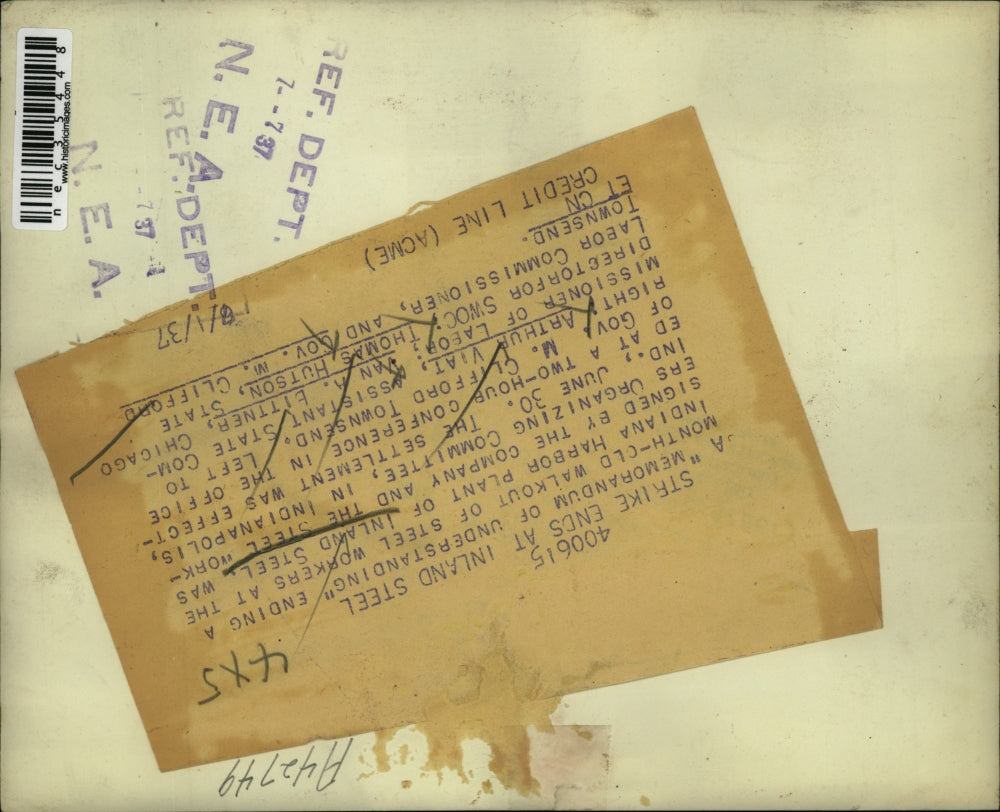 REF. DEPT.
7--737
N. E. A.
REF. DEPT.
--737
N. E. A.
n e c 3 5 4 4 8
www.historicimages.com
400615
STRIKE ENDS AT INLAND STEEL
A "MEMORANDUM OF UNDERSTANDING" ENDING A
MONTH-OLD WALKOUT OF STEEL WORKERS AT THE
INDIANA HARBOR PLANT OF INLAND STEEL, WAS
SIGNED BY THE COMPANY AND THE STEEL "WORK-
ERS ORGANIZING COMMITTEE, IN INDIANAPOLIS,
IND., JUNE 30. THE SETTLEMENT WAS EFFECT-
ED AT A TWO-HOUR CONFERENCE IN THE OFFICE
OF GOV. M. CLIFFORD TOWNSEND. LEFT TO
RIGHT ARTHUR VIAT, ASSISTANT STATE COM-
MISSIONER OF LABOR. VAN A. BITTNER, CHICAGO
DIRECTORFOR SWOC. THOMAS HUTSON, STATE
LABOR COMMISSIONER, AND GOV. M. CLIFFORD
TOWNSEND.
ET CN
CREDIT LINE (ACME)
4x5
A42749